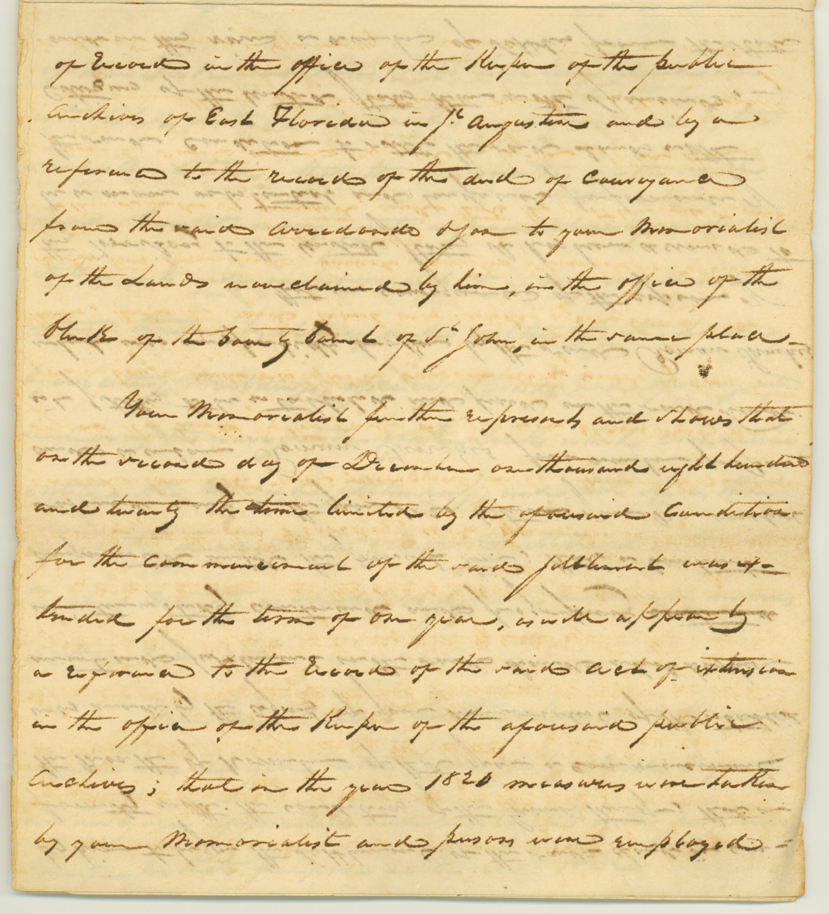 of Record in the office of the Keeper of the public
Archives of East Florida in St. Augustine and by a
reference to the record of the deed of conveyance
from the said Arredondo & Son to your Memorialist
of the Lands now claimed by him, in the office of the
Clerk of the County Court of St. John, in the same place -
Your Memorialist further represents and shows that
on the second day of December one thousand eight hundred
and twenty the time limited by the aforesaid Condition
for the commencement of the said settlement was ex-
tended for the term of one year, as will appear by
a reference to the Record of the said act of extension
in the office of the Keeper of the aforesaid public
Archives; that in the year 1820 measures were taken
by your Memorialist and persons were employed -